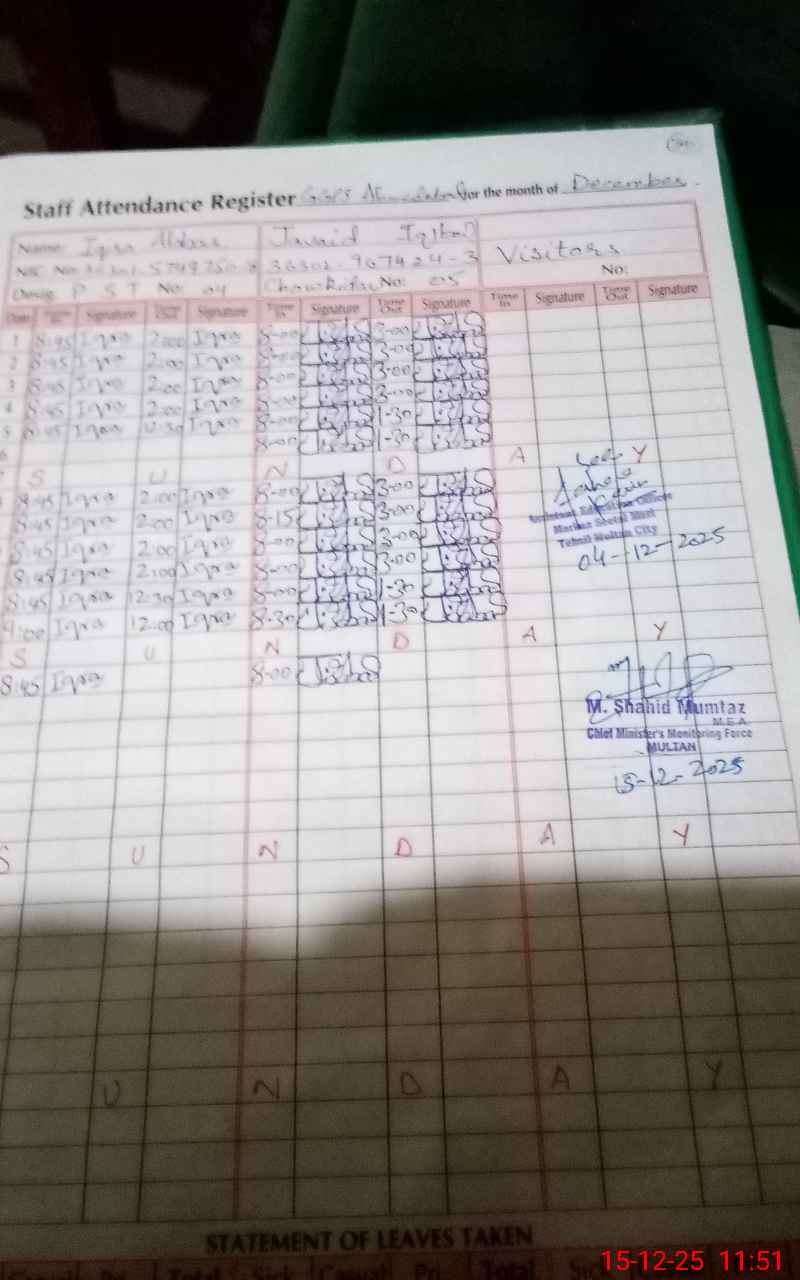 Staff Attendance Register GGPS for the month of December.
Name: Iqra Abbas Junaid Iqbal Visitors
NIC No: No:
Desig. P S T No: 04 Chowkidar No: 05
Date Time In Signature Time Out Signature Time In Signature Time Out Signature Time In Signature Time Out Signature
1 8:45 Iqra 2:00 Iqra 8-00 3-00
2 8:45 Iqra 2:00 Iqra 8-00 3-00
3 8:45 Iqra 2:00 Iqra 8-00 3-00
4 8:45 Iqra 2:00 Iqra 8-00 3-00
5 8:45 Iqra 12:30 Iqra 8-00 1-30
6 8-00 1-30
S U N D A Y
8:45 Iqra 2:00 Iqra 8-00 3-00
8:45 Iqra 2:00 Iqra 8-15 3-00
8:45 Iqra 2:00 Iqra 8-00 3-00
8:45 Iqra 2:00 Iqra 8-00 3-00
8:45 Iqra 12:30 Iqra 8-00 1-30
9:00 Iqra 12:00 Iqra 8-30 1-30
S U N D A Y
8:45 Iqra 8-00
Seen
Assistant Education Officer
Markaz
Tehsil Multan City
04-12-2025
M. Shahid Mumtaz
M.E.A
Chief Minister's Monitoring Force
MULTAN
15-12-2025
S U N D A Y
U N D A Y
STATEMENT OF LEAVES TAKEN
Total Sick Casual Total
15-12-25 11:51